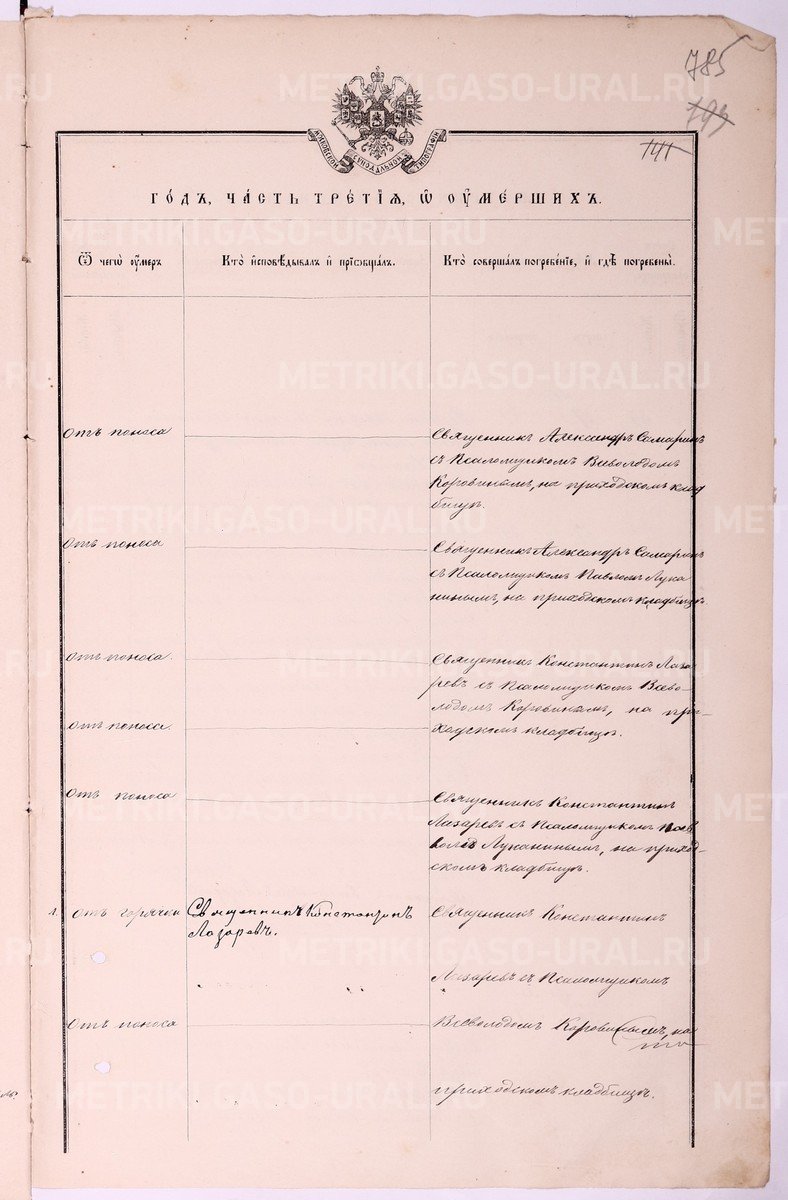 785
193
141
МОСКОВСКОЙ СѴНОДАЛЬНОЙ ТИПОГРАФІИ
ГО́ДЪ, ЧА́СТЬ ТРЕ́ТІѦ, Ѡ ОУМЕ́РШИХЪ.
Ѿ чегѡ̀ оу́меръ
Кто̀ и҆сповѣ́дывалъ и҆ прїѡбща́лъ.
Кто̀ соверша́лъ погребе́нїе, и҆ гдѣ̀ погребены̀.
Отъ поноса
Священникъ Александръ Самаринъ
съ Псаломщикомъ Всеволодомъ
Коровинымъ, на приходскомъ клад
бищѣ.
Отъ поноса
Священникъ Александръ Самаринъ
съ Псаломщикомъ Павломъ Лука
нинымъ, на приходскомъ кладбищѣ.
Отъ поноса.
Священникъ Константинъ Лаза-
ревъ съ Псаломщикомъ Всево-
лодомъ Коровинымъ, на при-
Отъ поноса.
ходскомъ кладбищѣ.
Отъ поноса
Священникъ Константинъ
Лазаревъ съ Псаломщикомъ
Луканинымъ, на приход-
скомъ кладбищѣ.
Отъ горячки
Священникъ Константинъ
Лазаревъ.
Священникъ Константинъ
Лазаревъ съ Псаломщикомъ
Отъ поноса
Всеволодомъ Коровинымъ, на
приходскомъ кладбищѣ.
METRIKI.GASO-URAL.RU